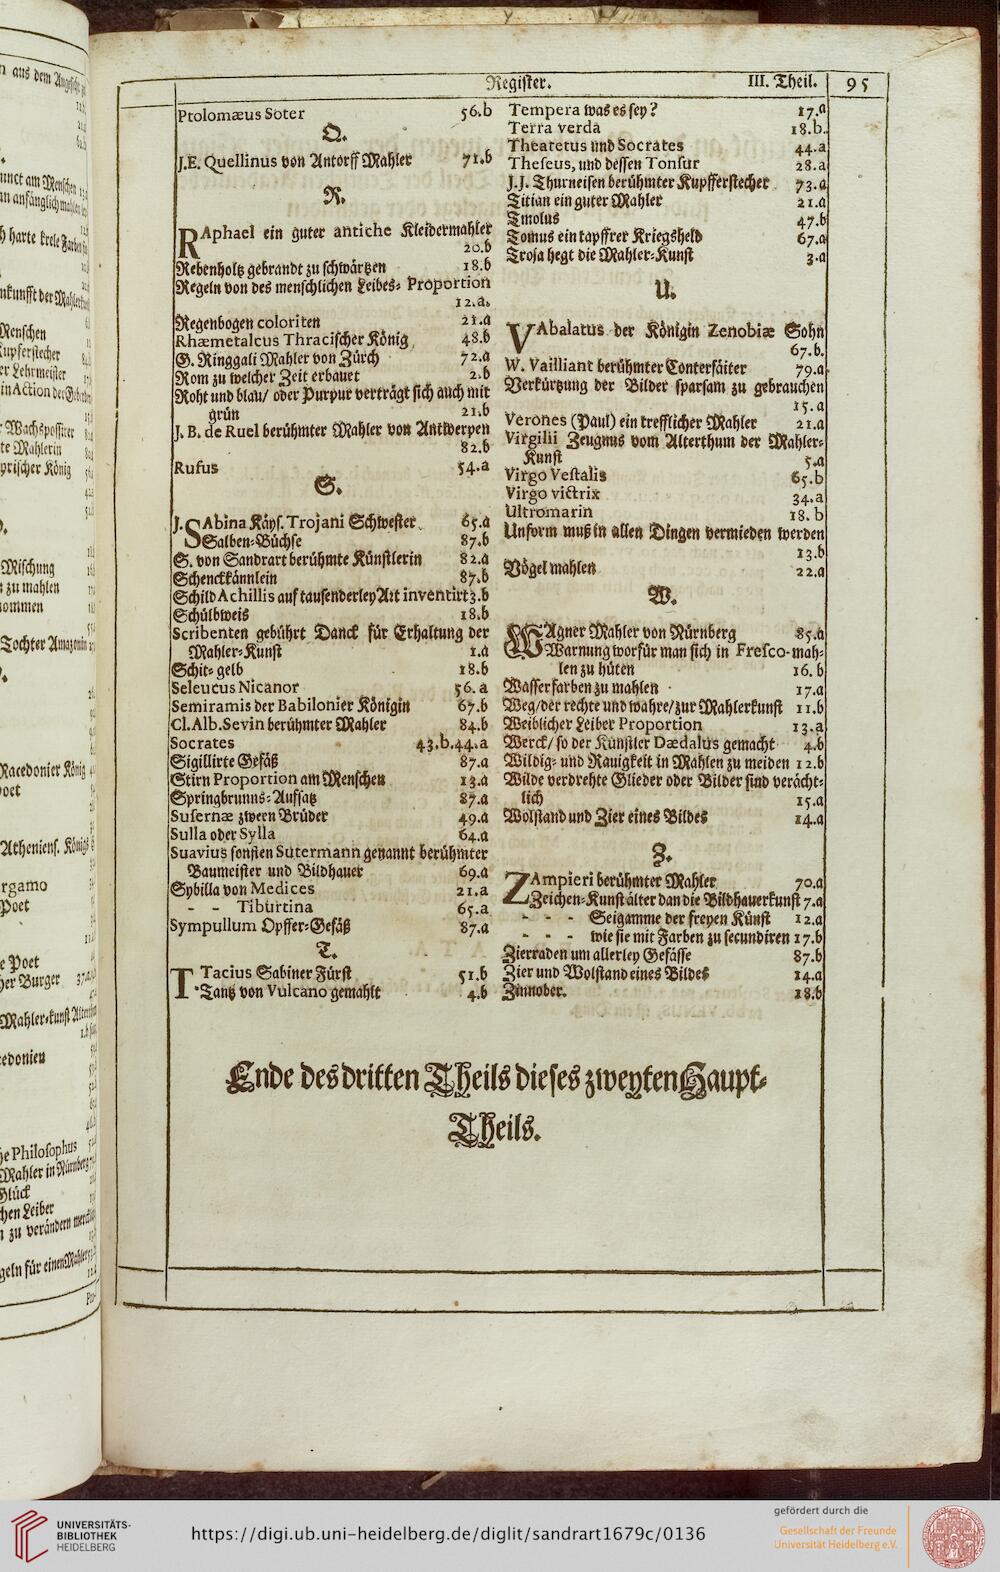 Register. III. Theil. 95
Ptolomæus Soter 56.b
Q.
J.E. Quellinus von Antorff Mahler 71.b
R.
RAphael ein guter antiche Kleidermahler
20.b
Rebenholtz gebrandt zu schwärtzen 18.b
Regeln von des menschlichen Leibes- Proportion
12.a.
Regenbogen coloriren 21.a
Rhæmetalcus Thracischer König 48.b
G. Ringgali Mahler von Zürch 72.a
Rom zu welcher Zeit erbauet 2.b
Roht und blau/ oder Purpur verträgt sich auch mit
grün 21.b
J. B. de Ruel berühmter Mahler von Antwerpen
82.b
Rufus 54.a
S.
J. SAbina Käys. Trojani Schwester 65.a
Salben-Büchse 87.b
S. von Sandrart berühmte Künstlerin 82.a
Schenckkännlein 87.b
Schild Achillis auf tausenderley Art inventirt 3.b
Schülbweis 18.b
Scribenten gebührt Danck für Erhaltung der
Mahler-Kunst 1.a
Schit-gelb 18.b
Seleucus Nicanor 56.a
Semiramis der Babilonier Königin 67.b
Cl. Alb. Sevin berühmter Mahler 84.b
Socrates 43.b.44.a
Sigillirte Gefäß 87.a
Stirn Proportion am Menschen 13.a
Springbrunns-Aufsatz 87.a
Susernæ zween Brüder 49.a
Sulla oder Sylla 64.a
Suavius sonsten Sutermann genannt berühmter
Baumeister und Bildhauer 69.a
Sybilla von Medices 21.a
- - Tiburtina 65.a
Sympullum Opffer-Gefäß 87.a
T.
TTacius Sabiner Fürst 51.b
Tantz von Vulcano gemahlt 4.b
Tempera was es sey? 17.a
Terra verda 18.b.
Theatetus und Socrates 44.a
Theseus, und dessen Tonsur 28.a
J.J. Thurneisen berühmter Kupfferstecher 73.a
Titian ein guter Mahler 21.a
Tmolus 47.b
Tomus ein tapffrer Kriegsheld 67.a
Troja hegt die Mahler-Kunst 3.a
U.
VAbalatus der Königin Zenobiæ Sohn
67.b.
W. Vailliant berühmter Conterfäiter 79.a
Verkürtzung der Bilder sparsam zu gebrauchen
15.a
Verones (Paul) ein trefflicher Mahler 21.a
Virgilii Zeugnus vom Alterthum der Mahler-
Kunst 5.a
Virgo Vestalis 65.b
Virgo victrix 34.a
Ultromarin 18.b
Unform muß in allen Dingen vermieden werden
13.b
Vögel mahlen 22.a
W.
WAgner Mahler von Nürnberg 85.a
Warnung worfür man sich in Fresco-mah-
len zu hüten 16.b
Wasserfarben zu mahlen 17.a
Weg/der rechte und wahre/zur Mahlerkunst 11.b
Weiblicher Leiber Proportion 13.a
Werck/ so der Künstler Dædalus gemacht 4.b
Wildig- und Rauigkeit in Mahlen zu meiden 12.b
Wilde verdrehte Glieder oder Bilder sind verächt-
lich 15.a
Wolstand und Zier eines Bildes 14.a
Z.
ZAmpieri berühmter Mahler 70.a
Zeichen-Kunst älter dan die Bildhauerkunst 7.a
- - - Seigamme der freyen Künst 12.a
- - - wie sie mit Farben zu secundiren 17.b
Zierraden um allerley Gefässe 87.b
Zier und Wolstand eines Bildes 14.a
Zinnober. 18.b
Ende des dritten Theils dieses zweyten Haupt-
Theils.
UNIVERSITÄTS-
BIBLIOTHEK
HEIDELBERG
https://digi.ub.uni-heidelberg.de/diglit/sandrart1679c/0136
gefördert durch die
Gesellschaft der Freunde
Universität Heidelberg e.V.